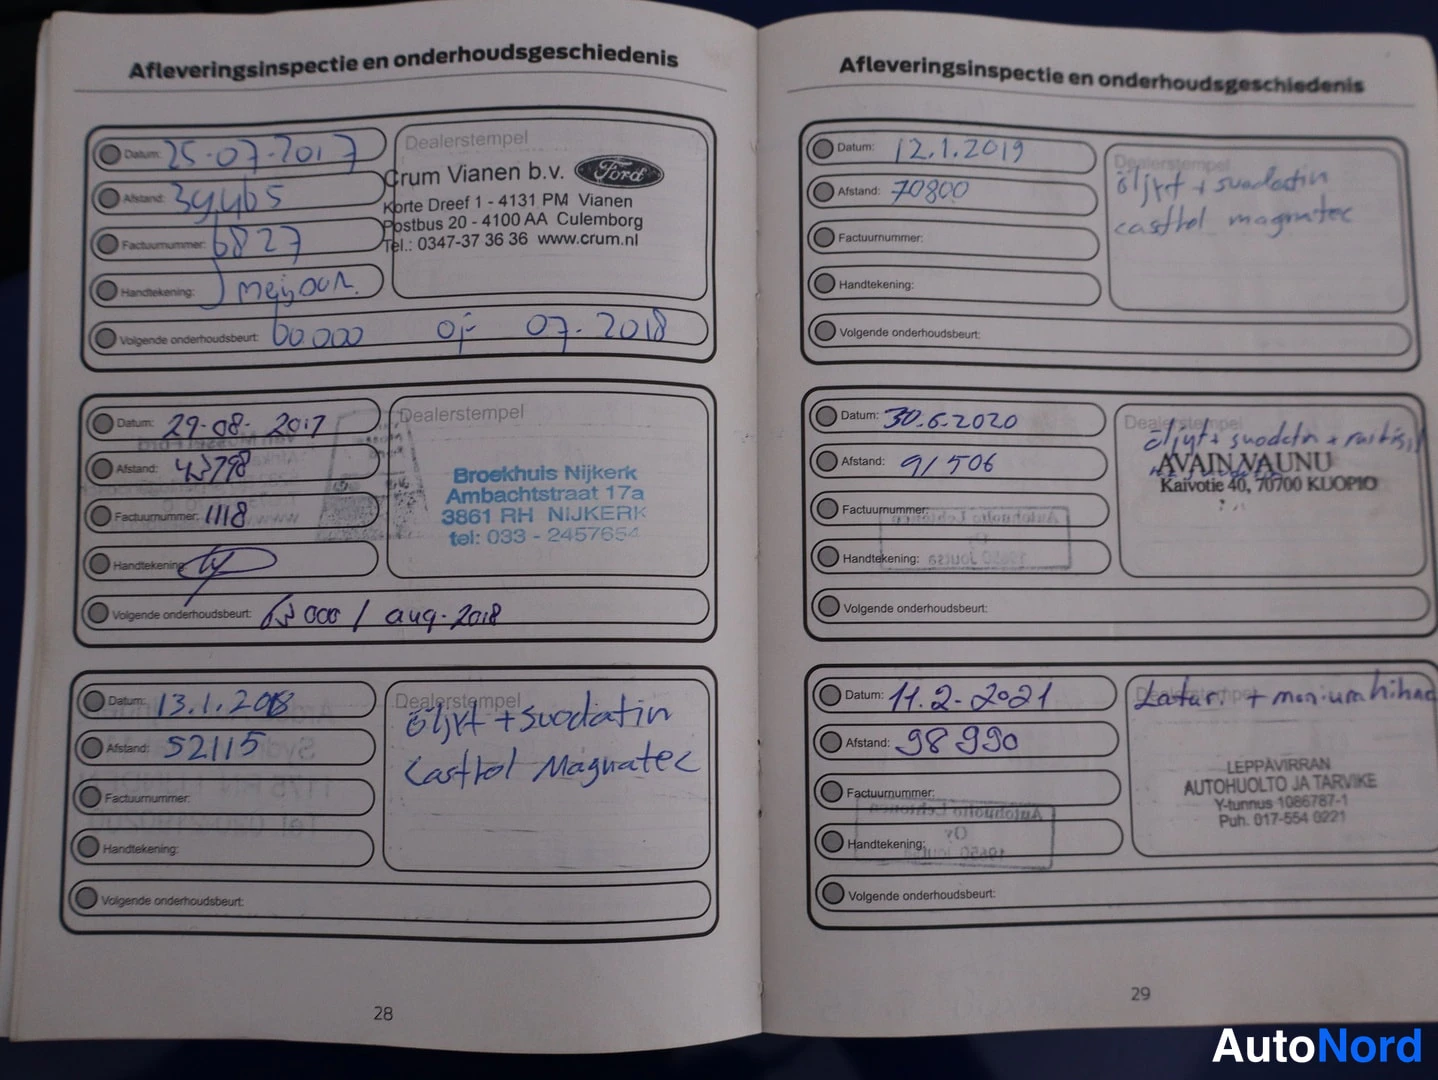 Afleveringsinspectie en onderhoudsgeschiedenis
Datum: 25-07-2017
Afstand: 39465
Factuurnummer: 6827
Handtekening:
Volgende onderhoudsbeurt: 60.000 of 07-2018
Dealerstempel
Crum Vianen b.v. Ford
Korte Dreef 1 - 4131 PM Vianen
Postbus 20 - 4100 AA Culemborg
Tel.: 0347-37 36 36 www.crum.nl
Datum: 29-08-2017
Afstand: 43798
Factuurnummer: 1118
Handtekening:
Volgende onderhoudsbeurt: 63000 / aug-2018
Dealerstempel
Broekhuis Nijkerk
Ambachtstraat 17a
3861 RH NIJKERK
tel: 033 - 2457654
Datum: 13.1.2018
Afstand: 52115
Factuurnummer:
Handtekening:
Volgende onderhoudsbeurt:
Dealerstempel
öljyt + suodatin
Castrol Magnatec
28
Afleveringsinspectie en onderhoudsgeschiedenis
Datum: 12.1.2019
Afstand: 70800
Factuurnummer:
Handtekening:
Volgende onderhoudsbeurt:
Dealerstempel
öljyt + suodatin
castrol magnatec
Datum: 30.6.2020
Afstand: 91506
Factuurnummer:
Handtekening:
Volgende onderhoudsbeurt:
Dealerstempel
AVAIN VAUNU
Kaivotie 40, 70700 KUOPIO
Datum: 11.2-2021
Afstand: 98990
Factuurnummer:
Handtekening:
Volgende onderhoudsbeurt:
Dealerstempel
LEPPÄVIRRAN
AUTOHUOLTO JA TARVIKE
Y-tunnus 1086787-1
Puh. 017-554 0221
29
AutoNord